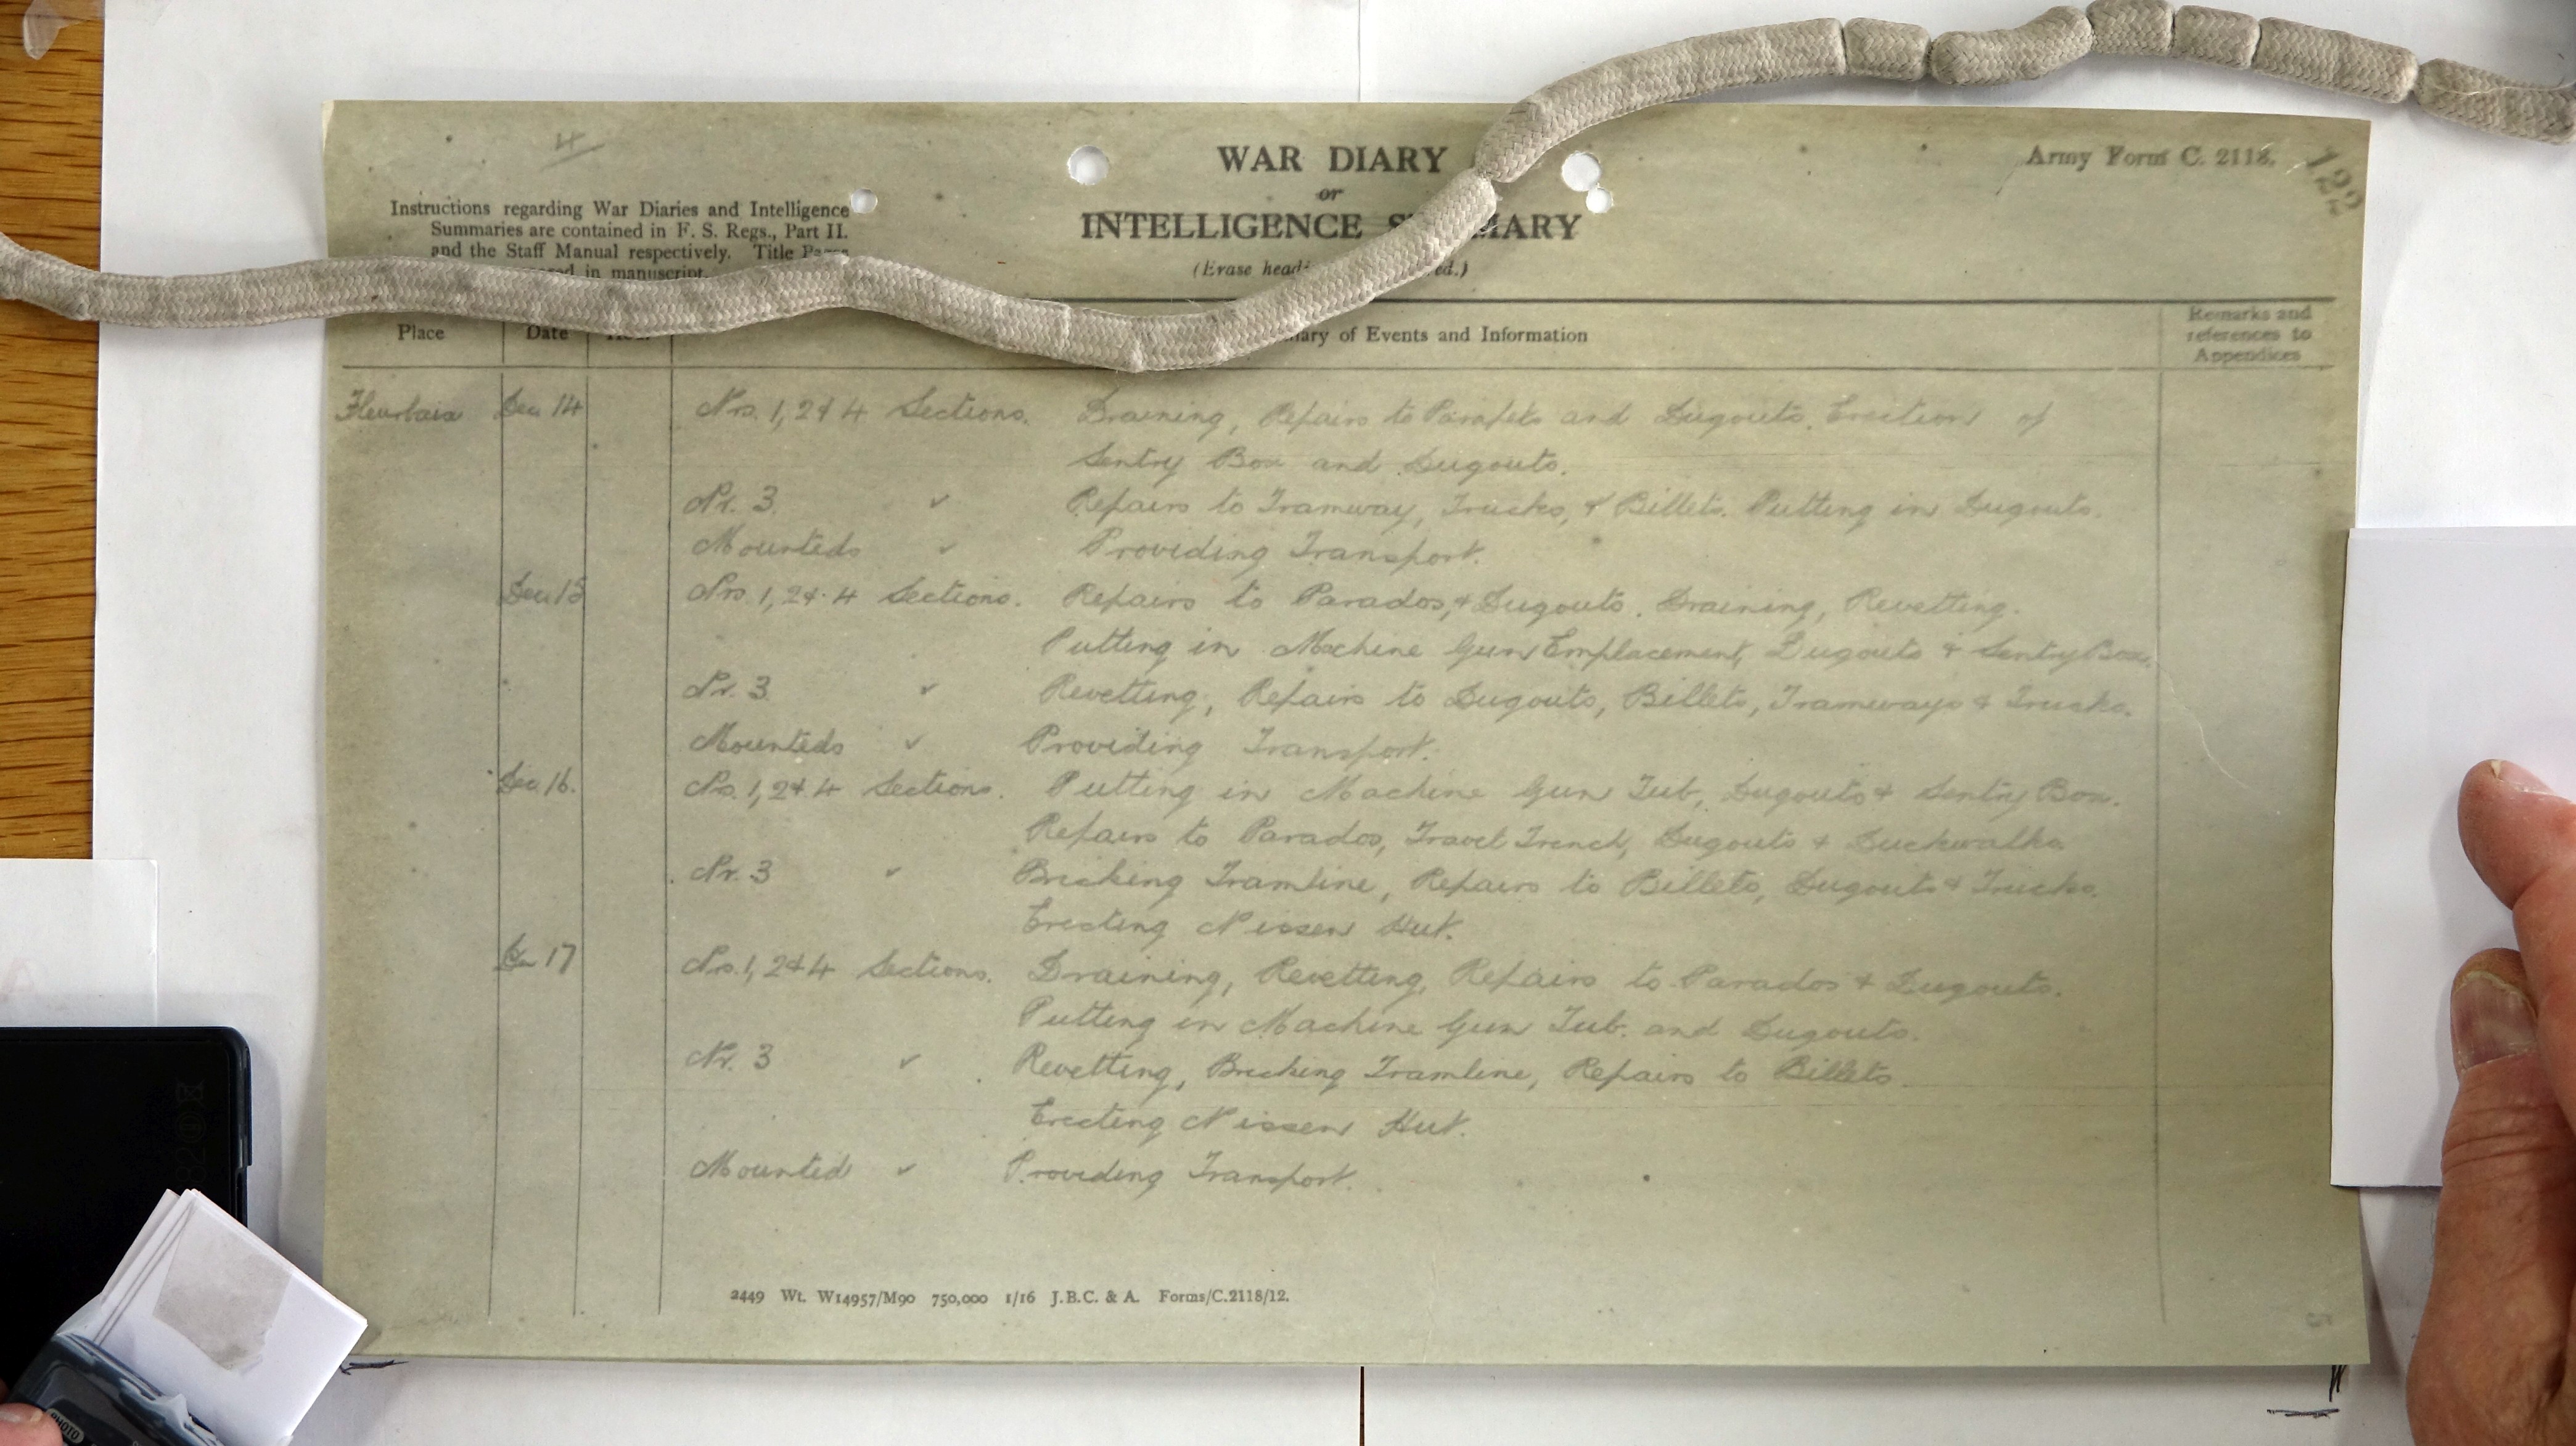 4
WAR DIARY
or
INTELLIGENCE SUMMARY
(Erase head ed.)
Army Form C. 2118.
122
Instructions regarding War Diaries and Intelligence
Summaries are contained in F. S. Regs., Part II.
and the Staff Manual respectively. Title Pages
in manuscript.
Place Date Hour ary of Events and Information Remarks and
references to
Appendices
Fleurbaix Dec 14 Nrs. 1, 2 & 4 Sections. Draining, Repairs to Parapets and Dugouts. Erection of
Sentry Box and Dugouts.
Nr. 3 " Repairs to Tramway, Trucks, & Billets. Putting in Dugouts.
Mounteds " Providing Transport.
Dec 15 Nrs. 1, 2 & 4 Sections. Repairs to Parados, & Dugouts. Draining, Revetting.
Putting in Machine Gun Emplacement, Dugouts & Sentry Box.
Nr. 3 " Revetting, Repairs to Dugouts, Billets, Tramways & Trucks.
Mounteds " Providing Transport.
Dec 16. Nrs. 1, 2 & 4 Sections. Putting in Machine Gun Tub, Dugouts & Sentry Box.
Repairs to Parados, Travel Trench, Dugouts & Duckwalks.
Nr. 3 " Bricking Tramline, Repairs to Billets, Dugouts & Trucks.
Erecting Nissen Hut.
Dec 17 Nrs. 1, 2 & 4 Sections. Draining, Revetting, Repairs to Parados & Dugouts.
Putting in Machine Gun Tub. and Dugouts.
Nr. 3 " Revetting, Bricking Tramline, Repairs to Billets.
Erecting Nissen Hut.
Mounted " Providing Transport.
2449 Wt. W14957/M90 750,000 1/16 J.B.C. & A. Forms/C.2118/12.